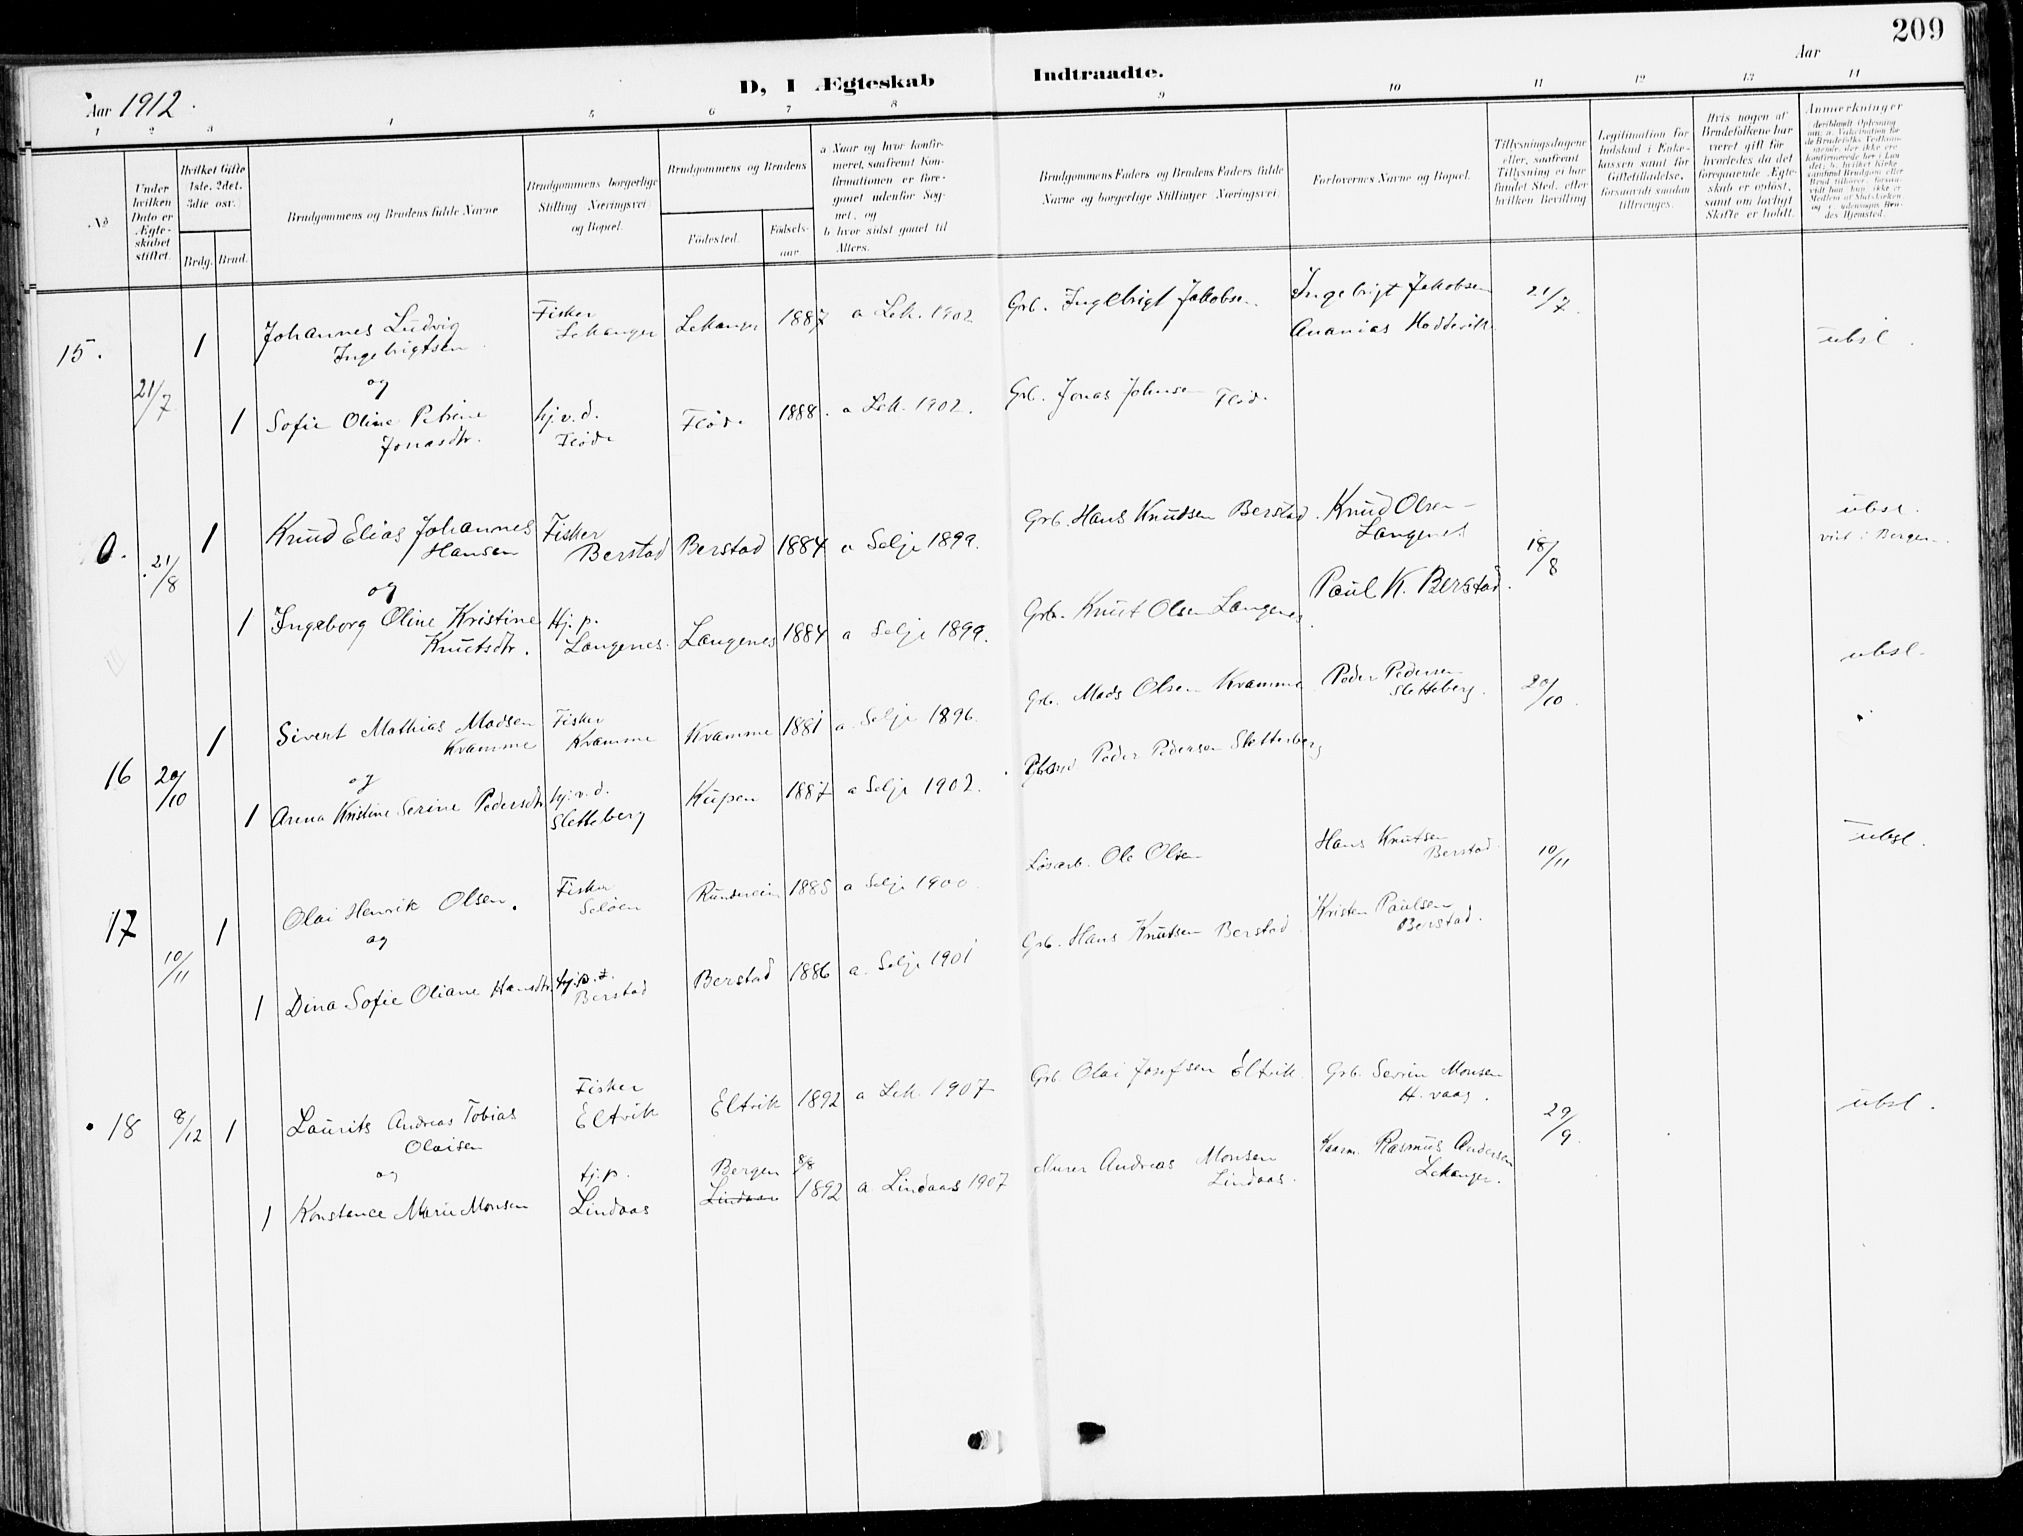 209
Aar 1912.
D, I Ægteskab Indtraadte.
Aar
1 2 3 4 5 6 7 8 9 10 11 12 13 14
No
Under hvilken Dato er Ægteskabet stiftet.
Hvilket Gifte 1ste, 2det, 3die osv.
Brdg. Brud.
Brudgommens og Brudens fulde Navne
Brudgommens borgerlige Stilling Næringsvei og Bopæl.
Brudgommens og Brudens
Fødested. Fødselsaar
a Naar og hvor konfirmeret, saafremt Konfirmationen er foregaaet udenfor Sognet, og
b hvor sidst gaaet til Alters.
Brudgommens Faders og Brudens Faders fulde Navne og borgerlige Stillinger Næringsvei.
Forlovernes Navne og Bopæl.
Tillysningsdagene eller, saafremt Tillysning ei har fundet Sted, efter hvilken Bevilling
Legitimation for Indskud i Enkekassen samt for Giftetilladelse, forsaavidt saadan tiltrænges.
Hvis nogen af Brudefolkene har været gift før hvorledes da det foregaaende Ægteskab er opløst, samt om lovligt Skifte er holdt.
Anmærkninger
15. 21/7 1 Johannes Ludvig Ingebrigtsen Fisker Lekanger Lekanger 1887 a Lek. 1902 Grb. Ingebrigt Jakobsen. Ingebrigt Jakobsen Ananias Hoddevik. 21/7. ubsl.
og
1 Sofie Oline Petrine Jonasdtr. hj.v.d. Fløde Fløde 1888. a Lek. 1902. Grb. Jonas Johnsen Fløde
0. 21/8 1 Knud Elias Johannes Hansen Fisker Berstad Berstad 1884 a Selje 1899. Grb. Hans Knudsen Berstad. Knud Olsen Langenes 18/8 ubsl. viet i Bergen.
og
1 Ingeborg Oline Kristine Knutsdtr. Hj. p. Langenes. Langenes 1884 a Selje 1899. Grb. Knut Olsen Langenes. Paul K. Berstad.
16 20/10 1 Sivert Mathias Madsen Kvamme Fisker Kvamme Kvamme 1881 a Selje 1896. Grb. Mads Olsen Kvamme Peder Pedersen Sletteberg. 20/10. ubsl.
og
1 Arena Kristine Serine Pedersdtr hj.v.d. Sletteberg Kupen 1887 a Selje 1902. Peder Pedersen Sletteberg
17 10/11 1 Olai Henrik Olsen. Fisker Seløen Runderein 1885 a Selje 1900 Løsarb. Ole Olsen Hans Knutsen Berstad. 10/11 ubsl.
og
1 Dina Sofie Oliane Hansdtr. Berstad Berstad 1886 a. Selje 1901 Grb. Hans Knutsen Berstad. Kristen Paulsen Berstad.
18 8/12 1 Laurits Andreas Tobias Olaisen Fisker Eltvik Eltvik 1892 a Lek 1907 Grb. Olai Josefsen Eltvik. Grb. Severin Monsen H. vaag. 29/9. ubsl.
og
1 Konstance Marie Monsen tj.p. Lindaas Bergen Lindaas 8/8 1892 a. Lindaas 1907 Murer Andreas Monsen Lindaas. Rasmus Andersen Lekanger.